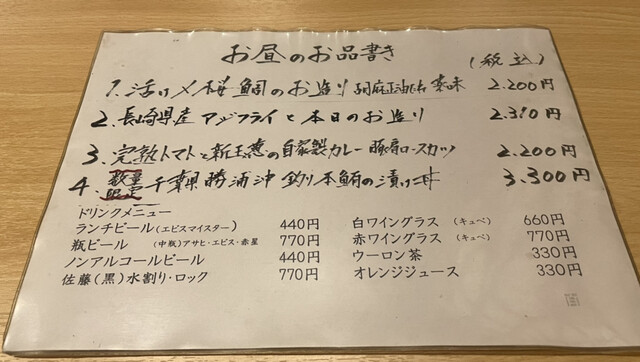 お昼のお品書き
(税込)
1. 活け〆桜鯛のお造り 胡麻正油 薬味 2.200円
2. 長崎県産アジフライと本日のお造り 2.310円
3. 完熟トマトと新玉葱の自家製カレー 豚肩ロースカツ 2.200円
4. 数量限定 千葉県勝浦沖 釣り本鮪の漬け丼 3.300円
ドリンクメニュー
ランチビール(エビスマイスター) 440円
瓶ビール (中瓶)アサヒ・エビス・赤星 770円
ノンアルコールビール 440円
佐藤(黒)水割り・ロック 770円
白ワイングラス (キュベ) 660円
赤ワイングラス (キュベ) 770円
ウーロン茶 330円
オレンジジュース 330円